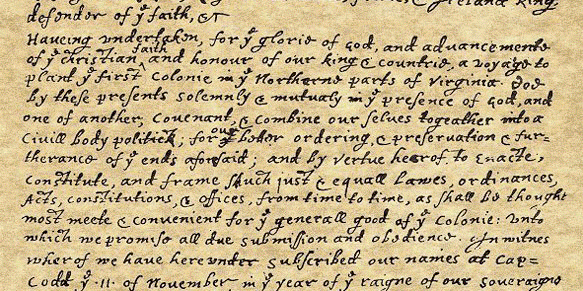 Ireland king,
defender of yͤ faith, &c
Haveing undertaken, for yͤ glorie of god, and advancemente
of yͤ christian faith and honour of our king & countrie, a voyage to
plant yͤ first colonie in yͤ Northerne parts of Virginia. doe
by these presents solemnly & mutualy in yͤ presence of god, and
one of another, covenant, & combine our selves togeather into a
civill body politick; for our better ordering, & preservation & fur=
therance of yͤ ends aforesaid; and by vertue hearof to enacte,
constitute, and frame such just & equall lawes, ordinances,
Acts, constitutions, & offices, from time to time, as shall be thought
most meete & convenient for yͤ generall good of yͤ Colonie: unto
which we promise all due submission and obedience. In witnes
wherof we have hereunder subscribed our names at Cap=
Codd yͤ .11. of November, in yͤ year of yͤ raigne of our soveraigne